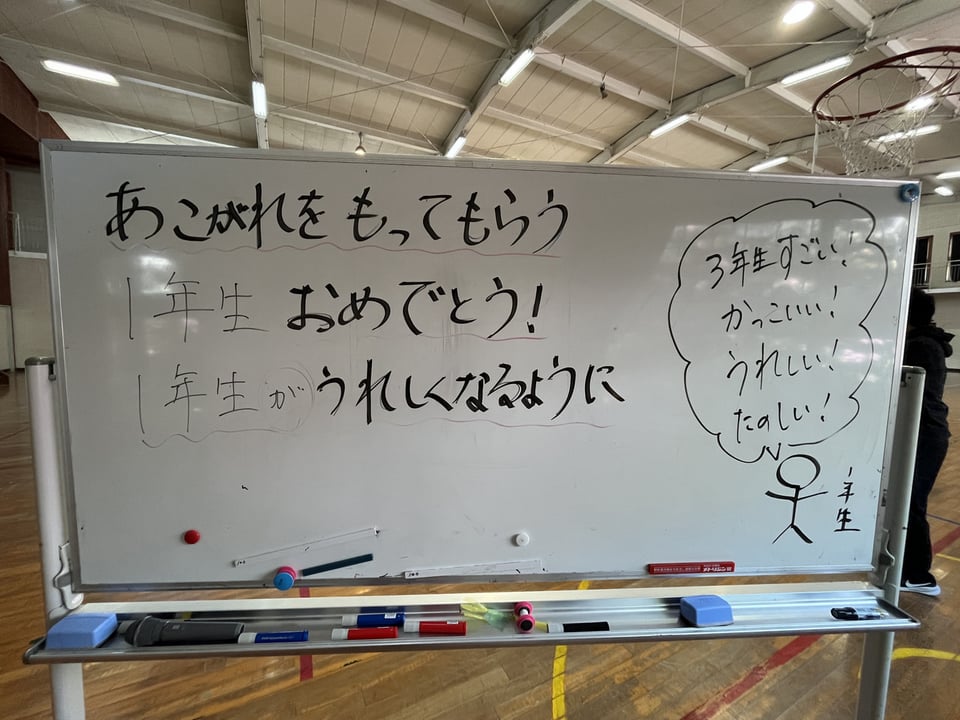 あこがれをもってもらう
1年生おめでとう!
1年生がうれしくなるように
3年生すごい!
かっこいい!
うれしい!
たのしい!
1年生